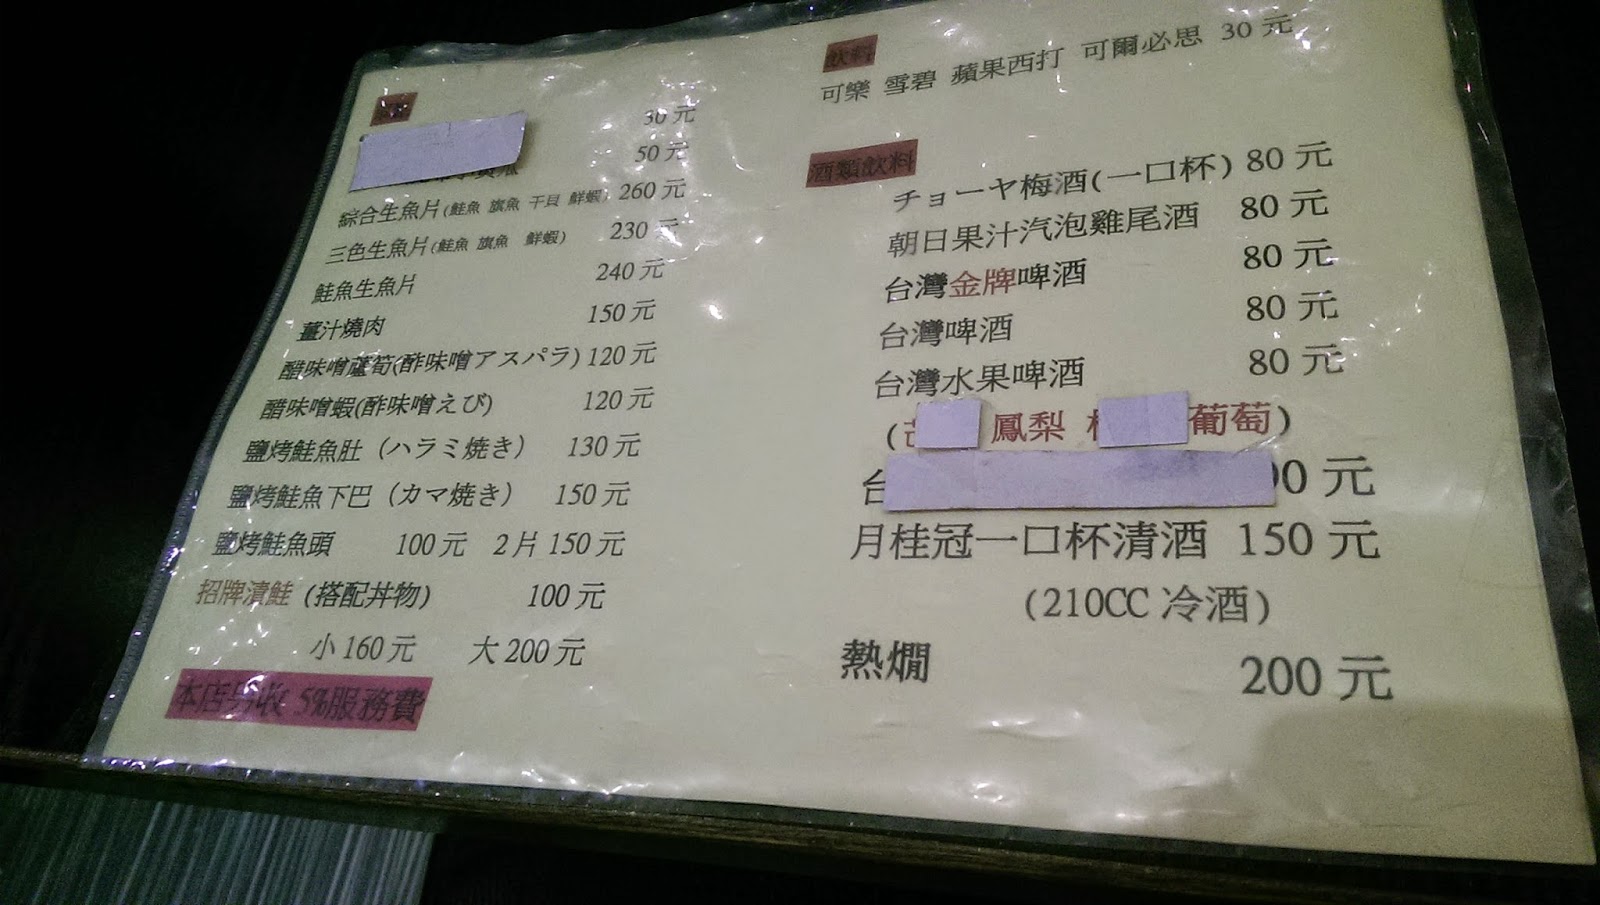 30元
50元
綜合生魚片(鮭魚 旗魚 干貝 鮮蝦) 260元
三色生魚片(鮭魚 旗魚 鮮蝦) 230元
鮭魚生魚片 240元
薑汁燒肉 150元
醋味噌蘆筍(酢味噌アスパラ) 120元
醋味噌蝦(酢味噌えび) 120元
鹽烤鮭魚肚（ハラミ焼き） 130元
鹽烤鮭魚下巴（カマ焼き） 150元
鹽烤鮭魚頭 100元 2片 150元
招牌漬鮭 (搭配丼物) 100元
小 160元 大 200元
本店另收 5%服務費
飲料
可樂 雪碧 蘋果西打 可爾必思 30元
酒類飲料
チョーヤ梅酒(一口杯) 80元
朝日果汁汽泡雞尾酒 80元
台灣金牌啤酒 80元
台灣啤酒 80元
台灣水果啤酒 80元
( 鳳梨 葡萄)
台 元
月桂冠一口杯清酒 150元
(210CC 冷酒)
熱燗 200元